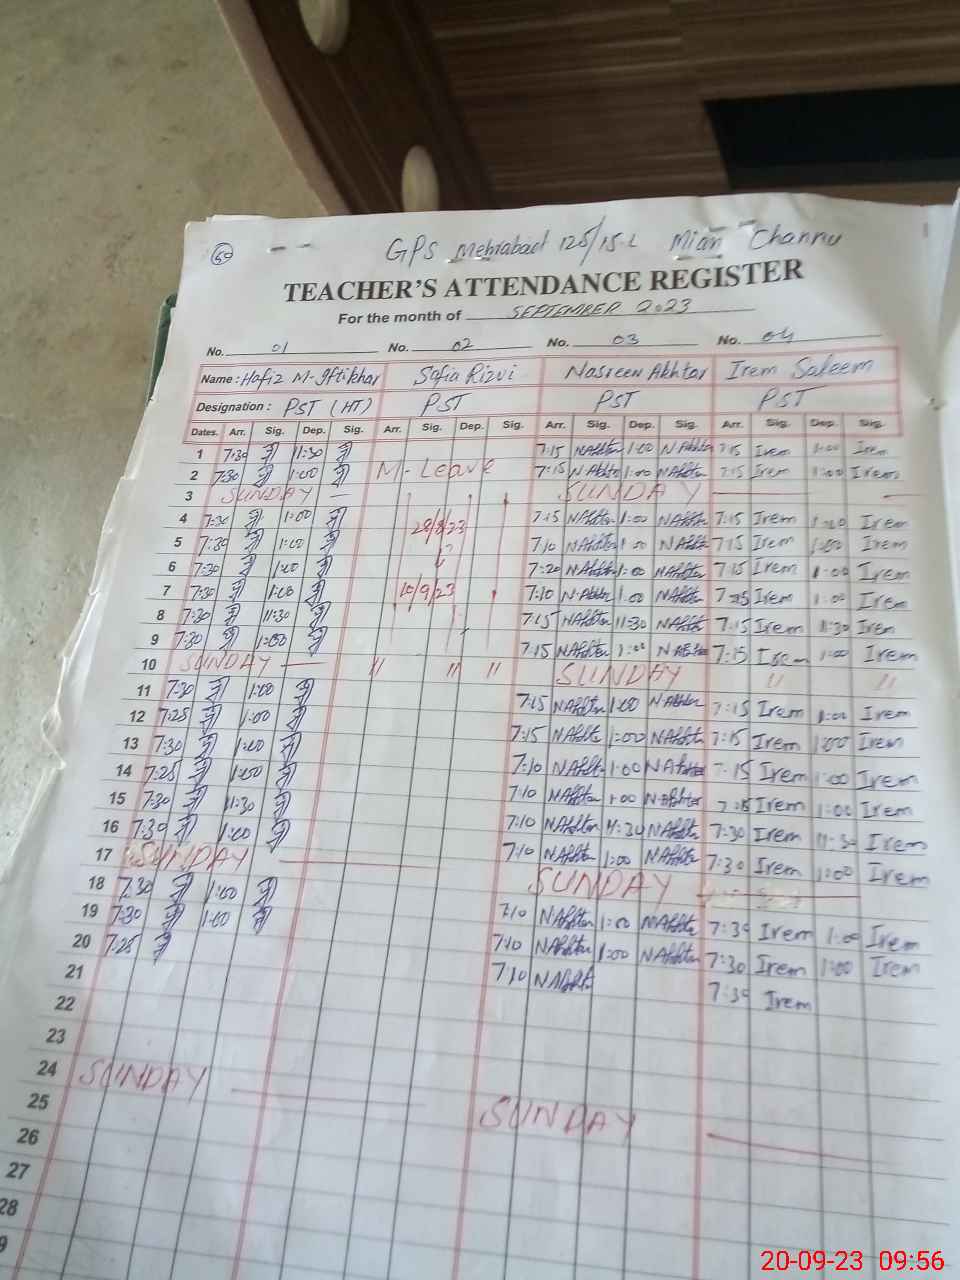 50
GPS Mehrabad 125/15-L Mian Channu
TEACHER'S ATTENDANCE REGISTER
For the month of SEPTEMBER 2023
No. 01 No. 02 No. 03 No. 04
Name: Hafiz M-Iftikhar Safia Rizvi Nasreen Akhtar Irem Saleem
Designation: PST (HT) PST PST PST
Dates. Arr. Sig. Dep. Sig. Arr. Sig. Dep. Sig. Arr. Sig. Dep. Sig. Arr. Sig. Dep. Sig.
1 7:30 11:30 7:15 NAkhtar 1:00 NAkhtar 7:15 Irem 1:00 Irem
2 7:30 1:00 M-Leave 7:15 NAkhtar 1:00 NAkhtar 7:15 Irem 1:00 Irem
3 SUNDAY — SUNDAY
4 7:30 1:00 28/8/23 7:15 NAkhtar 1:00 NAkhtar 7:15 Irem 1:00 Irem
5 7:30 1:00 7:10 NAkhtar 1:00 NAkhtar 7:15 Irem 1:00 Irem
6 7:30 1:00 7:20 NAkhtar 1:00 NAkhtar 7:15 Irem 1:00 Irem
7 7:30 1:00 10/9/23 7:10 NAkhtar 1:00 NAkhtar 7:15 Irem 1:00 Irem
8 7:30 11:30 7:15 NAkhtar 11:30 NAkhtar 7:15 Irem 11:30 Irem
9 7:30 1:00 7:15 NAkhtar 1:00 NAkhtar 7:15 Irem 1:00 Irem
10 SUNDAY — " " " SUNDAY " "
11 7:30 1:00 7:15 NAkhtar 1:00 NAkhtar 7:15 Irem 1:00 Irem
12 7:25 1:00 7:15 NAkhtar 1:00 NAkhtar 7:15 Irem 1:00 Irem
13 7:30 1:00 7:10 NAkhtar 1:00 NAkhtar 7:15 Irem 1:00 Irem
14 7:25 1:00 7:10 NAkhtar 1:00 NAkhtar 7:15 Irem 1:00 Irem
15 7:30 11:30 7:10 NAkhtar 11:30 NAkhtar 7:30 Irem 11:30 Irem
16 7:30 1:00 7:10 NAkhtar 1:00 NAkhtar 7:30 Irem 1:00 Irem
17 SUNDAY SUNDAY
18 7:30 1:00 7:10 NAkhtar 1:00 NAkhtar 7:30 Irem 1:00 Irem
19 7:30 1:00 7:10 NAkhtar 1:00 NAkhtar 7:30 Irem 1:00 Irem
20 7:25 7:10 NAkhtar 7:30 Irem
21
22
23
24 SUNDAY SUNDAY
25
26
27
28
20-09-23 09:56